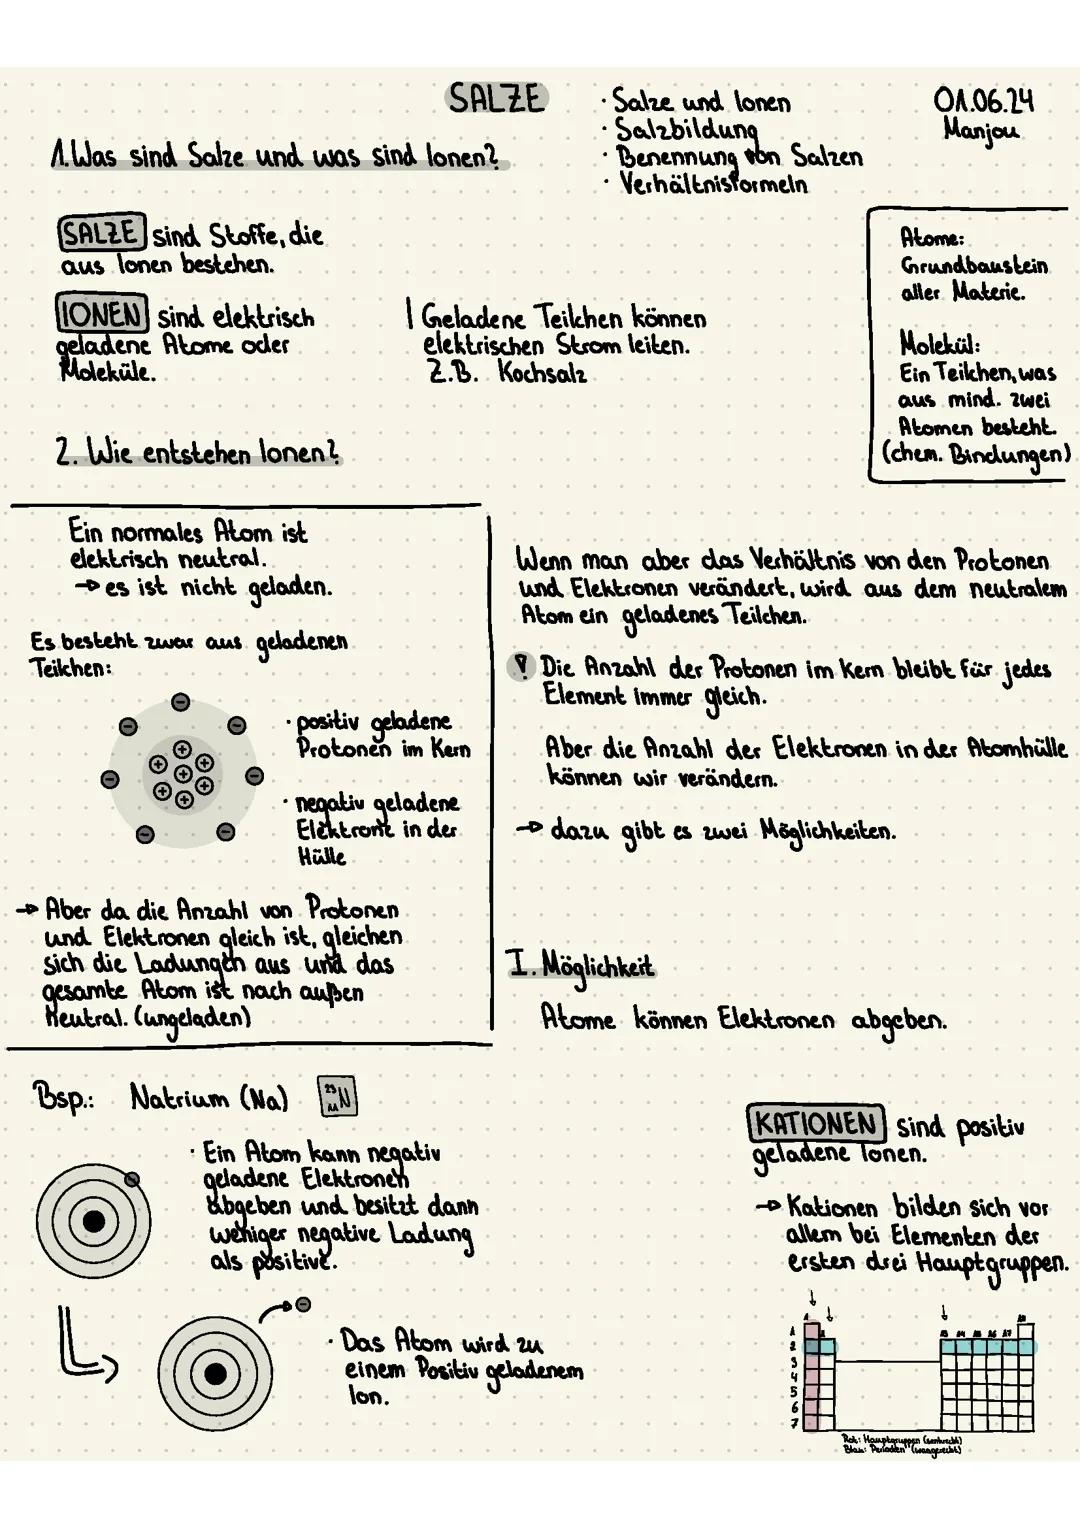 SALZE
· Salze und Ionen
· Salzbildung
· Benennung von Salzen
· Verhältnisformeln
01.06.24
Manjou
1. Was sind Salze und was sind Ionen?
SALZE sind Stoffe, die
aus Ionen bestehen.
IONEN sind elektrisch
geladene Atome oder
Moleküle.
! Geladene Teilchen können
elektrischen Strom leiten.
Z.B. Kochsalz
Atome:
Grundbaustein
aller Materie.
Molekül:
Ein Teilchen, was
aus mind. zwei
Atomen besteht.
(chem. Bindungen)
2. Wie entstehen Ionen?
Ein normales Atom ist
elektrisch neutral.
→ es ist nicht geladen.
Es besteht zwar aus geladenen
Teilchen:
· positiv geladene
Protonen im Kern
· negativ geladene
Elektrone in der
Hülle
→ Aber da die Anzahl von Protonen
und Elektronen gleich ist, gleichen
sich die Ladungen aus und das
gesamte Atom ist nach außen
Neutral. (ungeladen)
Wenn man aber das Verhältnis von den Protonen
und Elektronen verändert, wird aus dem neutralem
Atom ein geladenes Teilchen.
! Die Anzahl der Protonen im Kern bleibt für jedes
Element immer gleich.
Aber die Anzahl der Elektronen in der Atomhülle
können wir verändern.
→ dazu gibt es zwei Möglichkeiten.
I. Möglichkeit
Atome können Elektronen abgeben.
Bsp.: Natrium (Na)
23
11 N
· Ein Atom kann negativ
geladene Elektronen
abgeben und besitzt dann
weniger negative Ladung
als positive.
· Das Atom wird zu
einem Positiv geladenem
Ion.
KATIONEN sind positiv
geladene Ionen.
→ Kationen bilden sich vor
allem bei Elementen der
ersten drei Hauptgruppen.
1 2 13 14 15 16 17 18
1
2
3
4
5
6
7
Rot: Hauptgruppen (senkrecht)
Blau: Perioden (waagerecht)